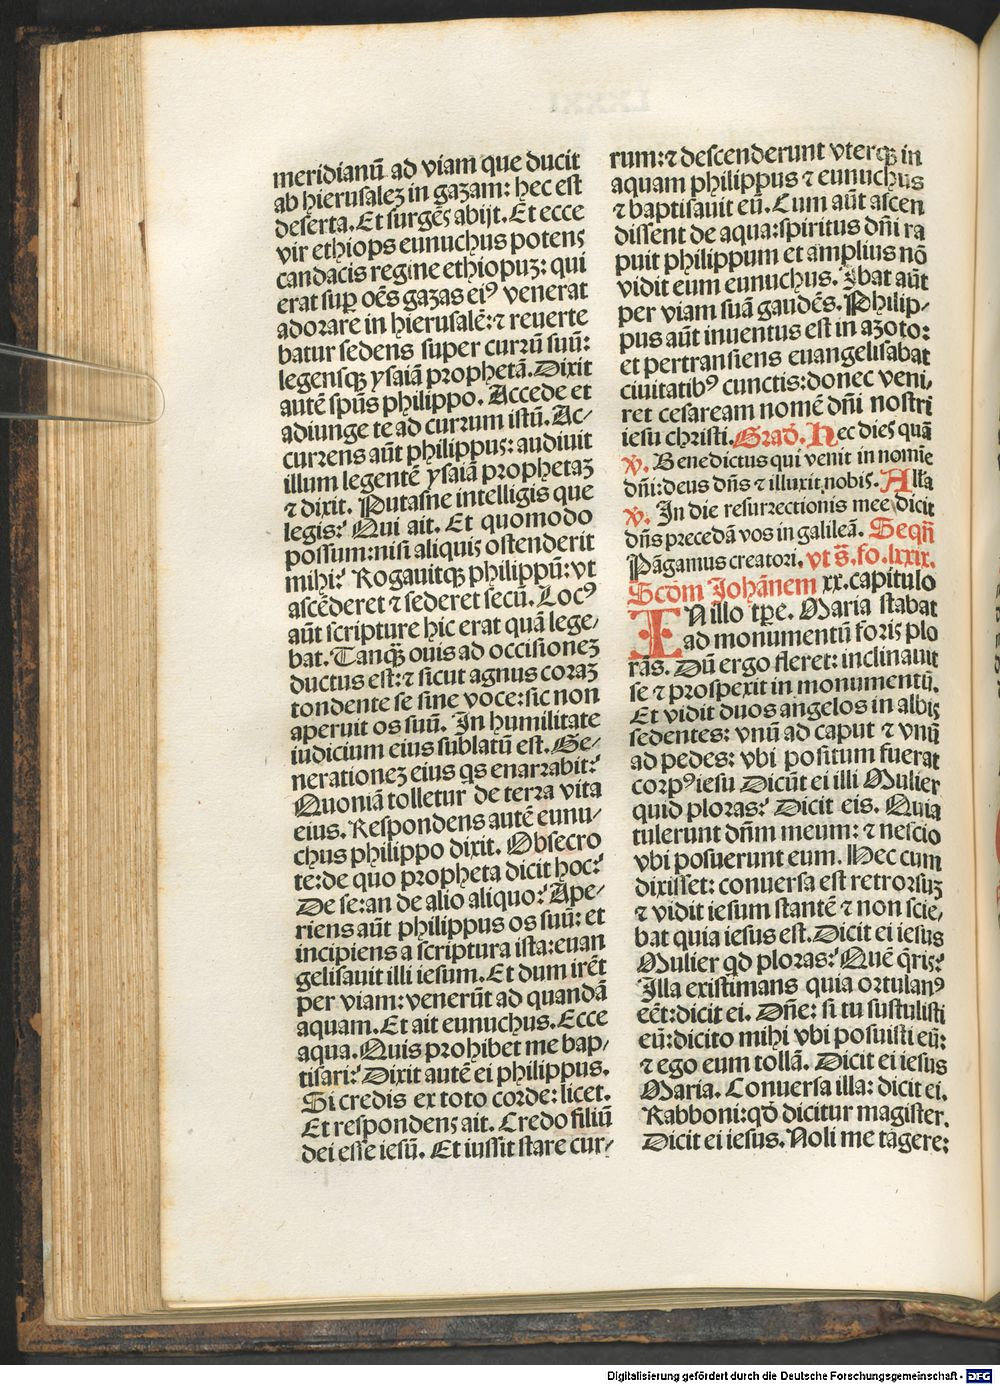 meridianū ad viam que ducit
ab hierusalez in gazam: hec est
deserta. Et surgēs abijt. Et ecce
vir ethiops eunuchus potens
candacis regine ethiopuz: qui
erat sup oēs gazas eiꝰ venerat
adorare in hierusalē: ⁊ reuerte
batur sedens super currū suū:
legensqꝫ ysaiā prophetā. Dixit
autē spūs philippo. Accede et
adiunge te ad currum istū. Ac/
currens aūt philippus: audiuit
illum legentē ysaiā prophetaz
⁊ dixit. Putasne intelligis que
legis? Qui ait. Et quomodo
possum: nisi aliquis ostenderit
mihi? Rogauitqꝫ philippū: vt
ascēderet ⁊ sederet secū. Locꝰ
aūt scripture hic erat quā lege/
bat. Tanqꝫ ouis ad occisionez
ductus est: ⁊ sicut agnus coraz
tondente se sine voce: sic non
aperuit os suū. In humilitate
iudicium eius sublatū est. Ge/
nerationez eius qs enarrabit?
Quoniā tolletur de terra vita
eius. Respondens autē eunu/
chus philippo dixit. Obsecro
te: de quo propheta dicit hoc?
De se: an de alio aliquo? Ape/
riens aūt philippus os suū: et
incipiens a scriptura ista: euan
gelisauit illi iesum. Et dum irēt
per viam: venerūt ad quandā
aquam. Et ait eunuchus. Ecce
aqua. Quis prohibet me bap/
tisari? Dixit autē ei philippus.
Si credis ex toto corde: licet.
Et respondens ait. Credo filiū
dei esse iesū. Et iussit stare cur/
rum: ⁊ descenderunt vterqꝫ in
aquam philippus ⁊ eunuchus
⁊ baptisauit eū. Cum aūt ascen
dissent de aqua: spiritus dn̄i ra
puit philippum et amplius nō
vidit eum eunuchus. Ibat aūt
per viam suā gaudēs. Philip/
pus aūt inuentus est in azoto:
et pertransiens euangelisabat
ciuitatibꝰ cunctis: donec veni/
ret cesaream nomē dn̄i nostri
iesu christi. Grad̄. Hec dies quā
℣. Benedictus qui venit in nomīe
dn̄i: deus dn̄s ⁊ illuxit nobis. All'a
℣. In die resurrectionis mee dicit
dn̄s precedā vos in galileā. Seqn̄
Pāgamus creatori. vt s̄. fo. lxxix.
Scd̄m Johānem xx. capitulo
IN illo tp̄e. Maria stabat
ad monumentū foris plo
rās. Dū ergo fleret: inclinauit
se ⁊ prospexit in monumentū.
Et vidit duos angelos in albis
sedentes: vnū ad caput ⁊ vnū
ad pedes: vbi positum fuerat
corpꝰ iesu Dicūt ei illi Mulier
quid ploras? Dicit eis. Quia
tulerunt dn̄m meum: ⁊ nescio
vbi posuerunt eum. Hec cum
dixisset: conuersa est retrorsuz
⁊ vidit iesum stantē ⁊ non scie/
bat quia iesus est. Dicit ei iesus
Mulier qd ploras? Quē q̄ris?
Illa existimans quia ortulanꝰ
eēt: dicit ei. Dn̄e: si tu sustulisti
eū: dicito mihi vbi posuisti eū:
⁊ ego eum tollā. Dicit ei iesus
Maria. Conuersa illa: dicit ei.
Rabboni: qd̄ dicitur magister.
Dicit ei iesus. Noli me tāgere:
Digitalisierung gefördert durch die Deutsche Forschungsgemeinschaft - DFG